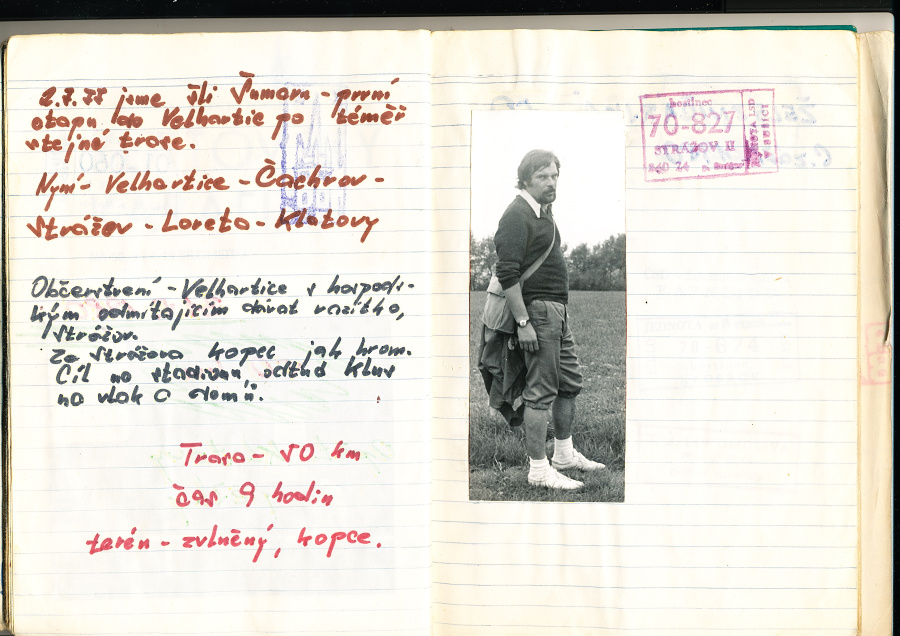 2.7.77 jsme šli Šumavu - první
etapu do Velhartic po téměř
stejné trase.
Nýrsko - Velhartice - Čachrov -
Strážov - Loreta - Klatovy
Občerstvení - Velhartice s hospods-
kým odmítajícím dávat razítko,
Strážov.
Za Strážova kopec jak hrom.
Cíl na stadionu, odtud klus
na vlak a domů.
Trasa - 50 km
čas 9 hodin
terén - zvlněný, kopce.
70-827
STRÁŽOV